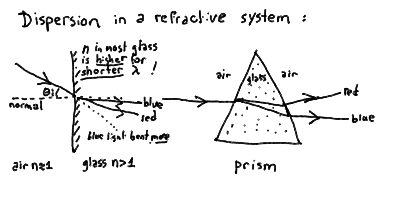 Dispersion in a refractive system :
n in most glass
is higher for
shorter λ !
θi
normal
blue
red
blue light bent more
air n≈1
glass n>1
air
glass
air
red
blue
prism